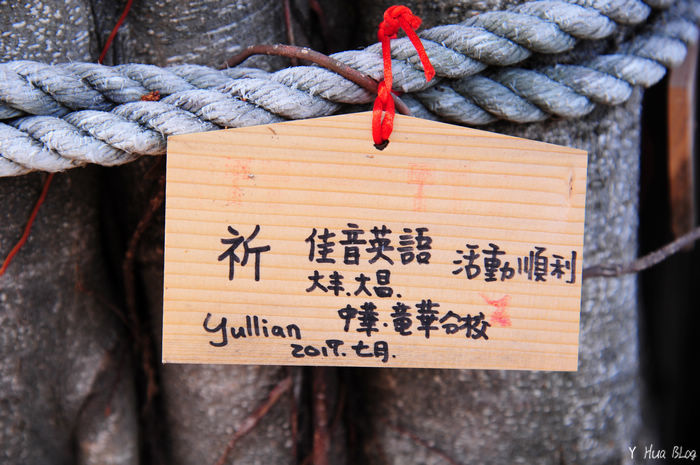 祈 佳音英語 活動順利
大丰.大昌.
中華.竜華分校
Yullian
2017.七月.
Y Hua BLOG